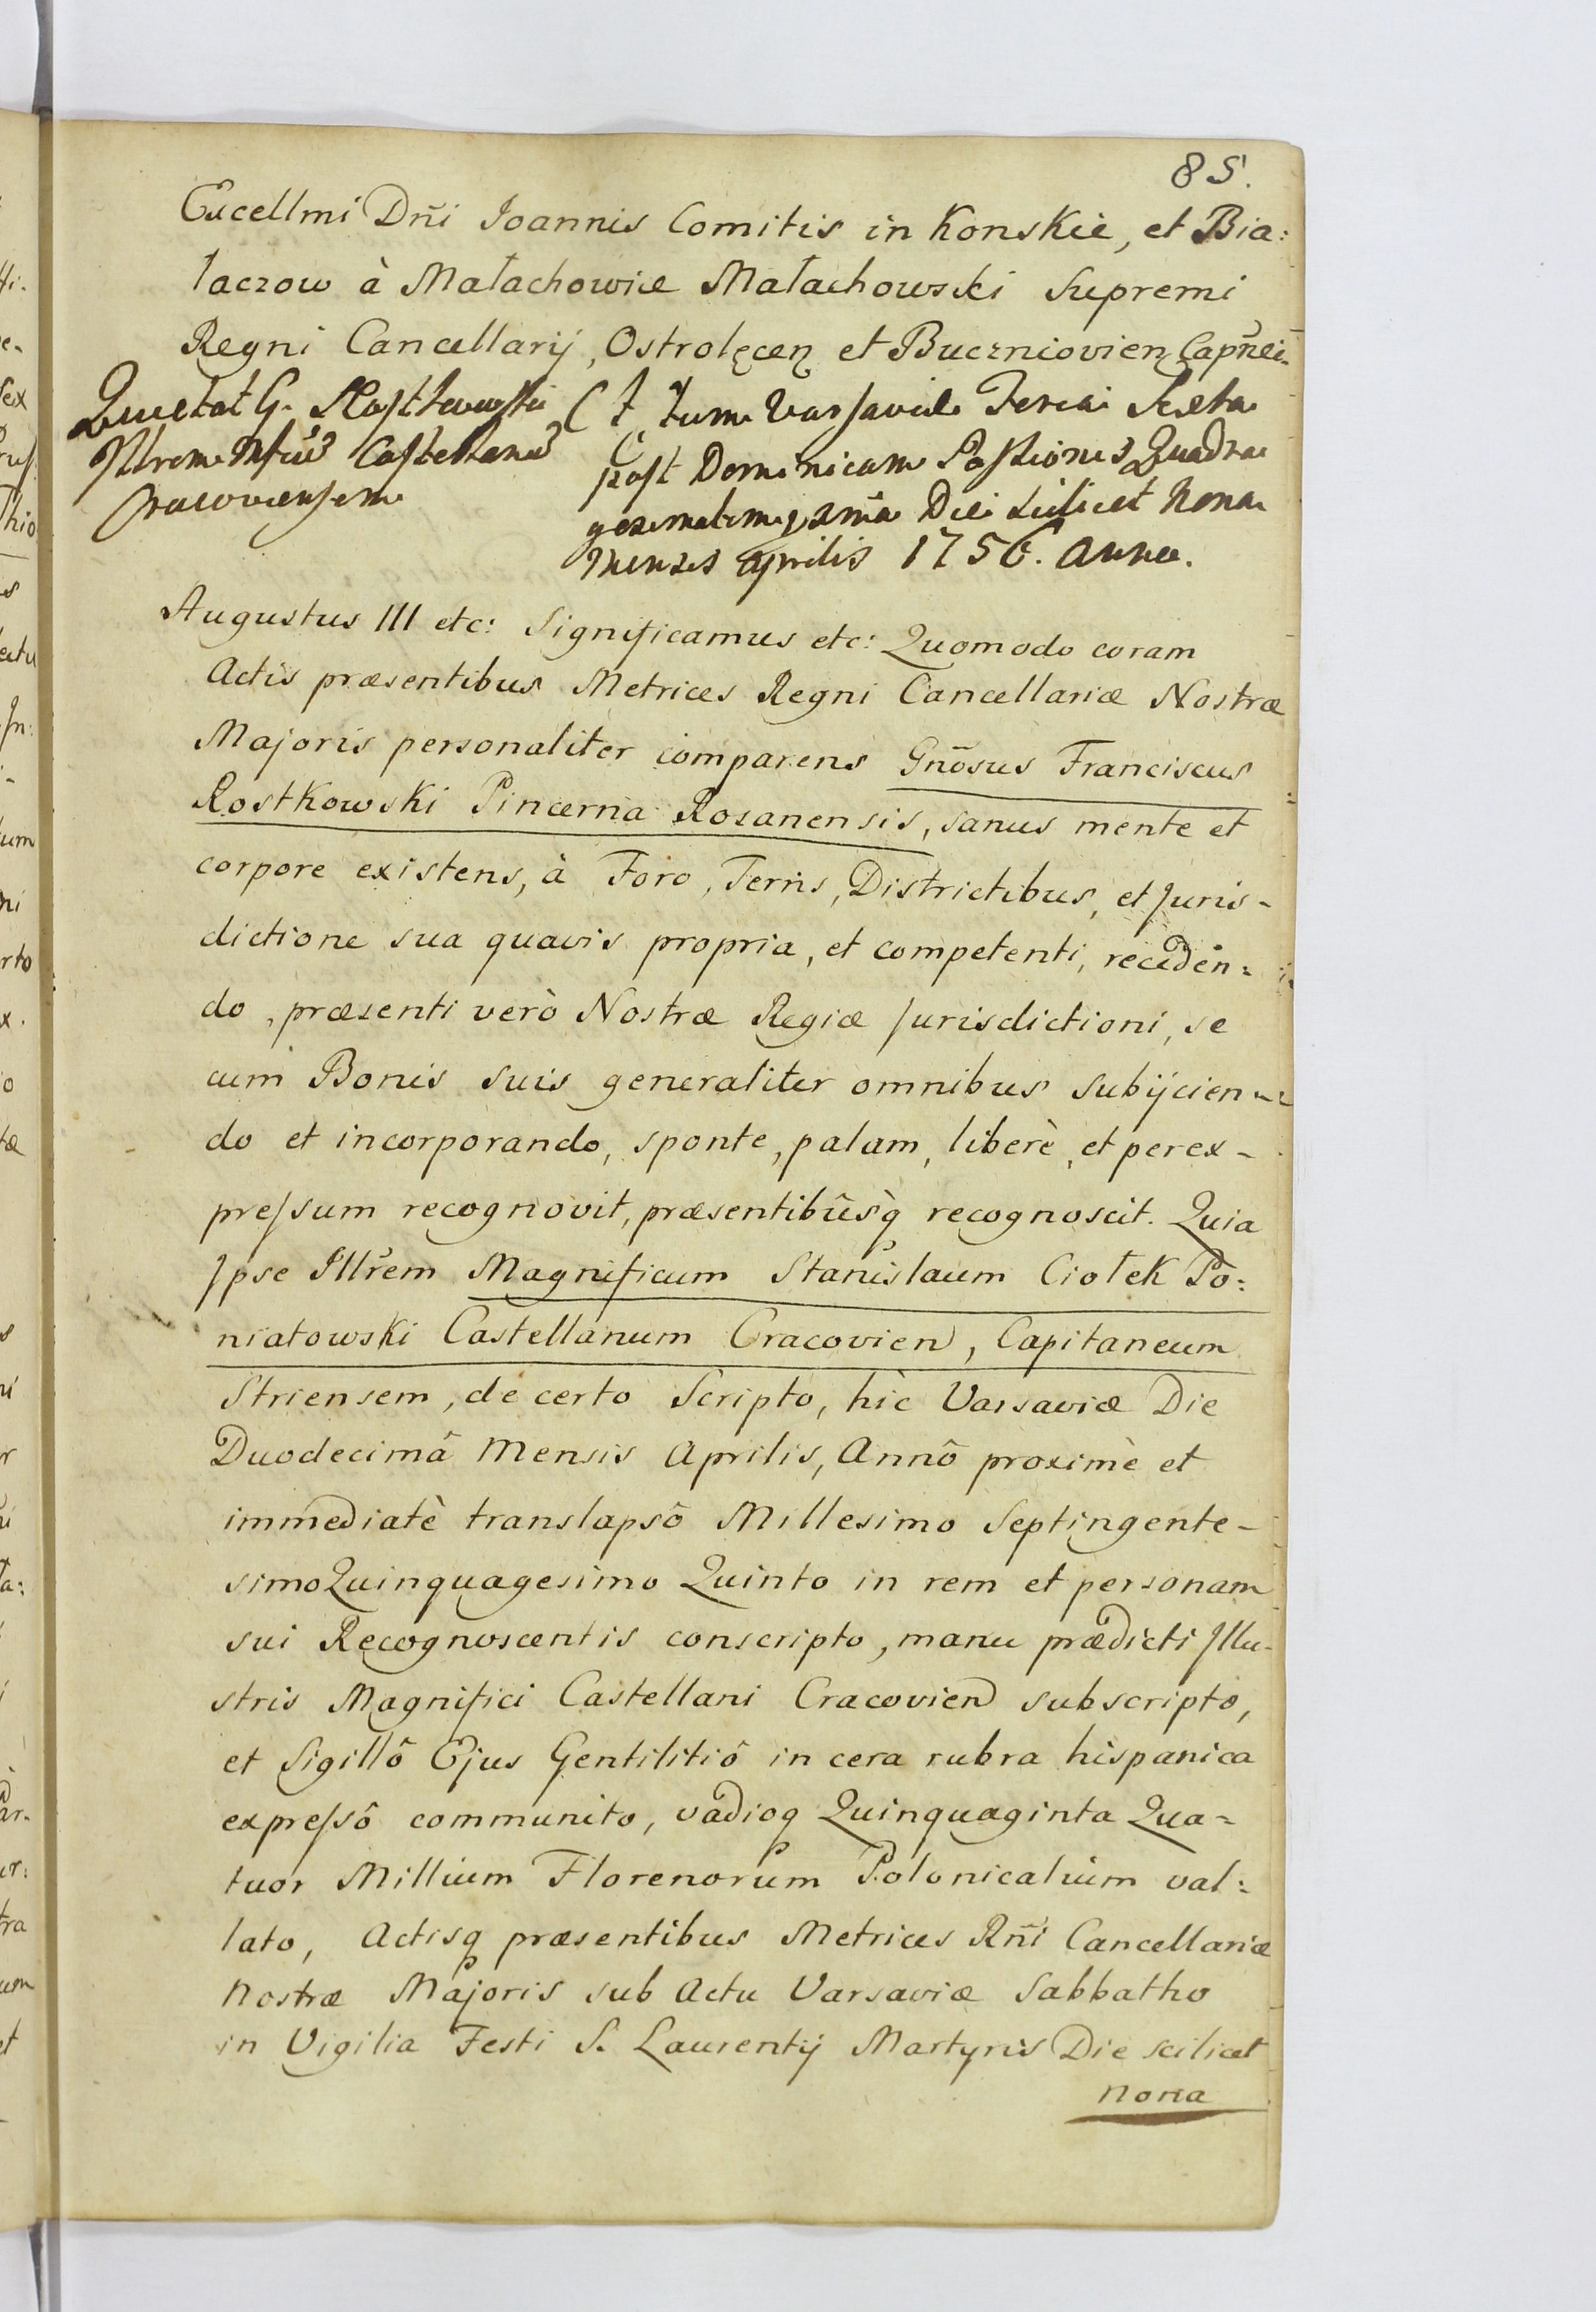 85.
Excellmi Dñi Joannis Comitis in Konskie, et Bia:
łaczow à Małachowice Małachowski Supremi
Regni Cancellarij, Ostrolęcen et Buczniovien Capnei
Quietat G. Rostkowski
Illrem Mficum Castellanum
Cracoviensem
Actum Varsaviæ Feria Sexta
post Dominicam Passionis Quadra
gesimalem Die scilicet Nona
Mensis Aprilis 1756. Anno.
Augustus III etc: Significamus etc: Quomodo coram
Actis præsentibus Metrices Regni Cancellariæ Nostræ
Majoris personaliter comparens Gnõsus Franciscus
Rostkowski Pincerna Rozanensis, sanus mente et
corpore existens, à Foro, Terris, Districtibus, et Juris-
dictione sua quavis propria, et competenti, receden=
do, præsenti verò Nostræ Regiæ Jurisdictioni, se
cum Bonis suis generaliter omnibus subijcien=
do et incorporando, sponte, palam, liberè, et per ex-
preſsum recognovit, præsentibûsq̀ recognoscit. Quia
Ipse Illrem Magnificum Stanislaum Ciołek Po:
niatowski Castellanum Cracovien, Capitaneum
Striensem, de certo Scripto, hic Varsaviæ Die
Duodecimâ Mensis Aprilis, Annô proximè et
immediatè translapsô Millesimo Septingente-
simo Quinquagesimo Quinto in rem et personam
sui Recognoscentis conscripto, manu prædicti Illu-
stris Magnifici Castellani Cracovien subscripto,
et Sigillô Ejus Gentilitiô in cera rubra hispanica
expreſsô communito, vadioq Quinquaginta Qua=
tuor Millium Florenorum Polonicalium val:
lato, Actisq præsentibus Metrices Rñi Cancellariæ
Nostræ Majoris sub Actu Varsaviæ Sabbatho
in Vigilia Festi S. Laurentij Martyris Die scilicet
nona